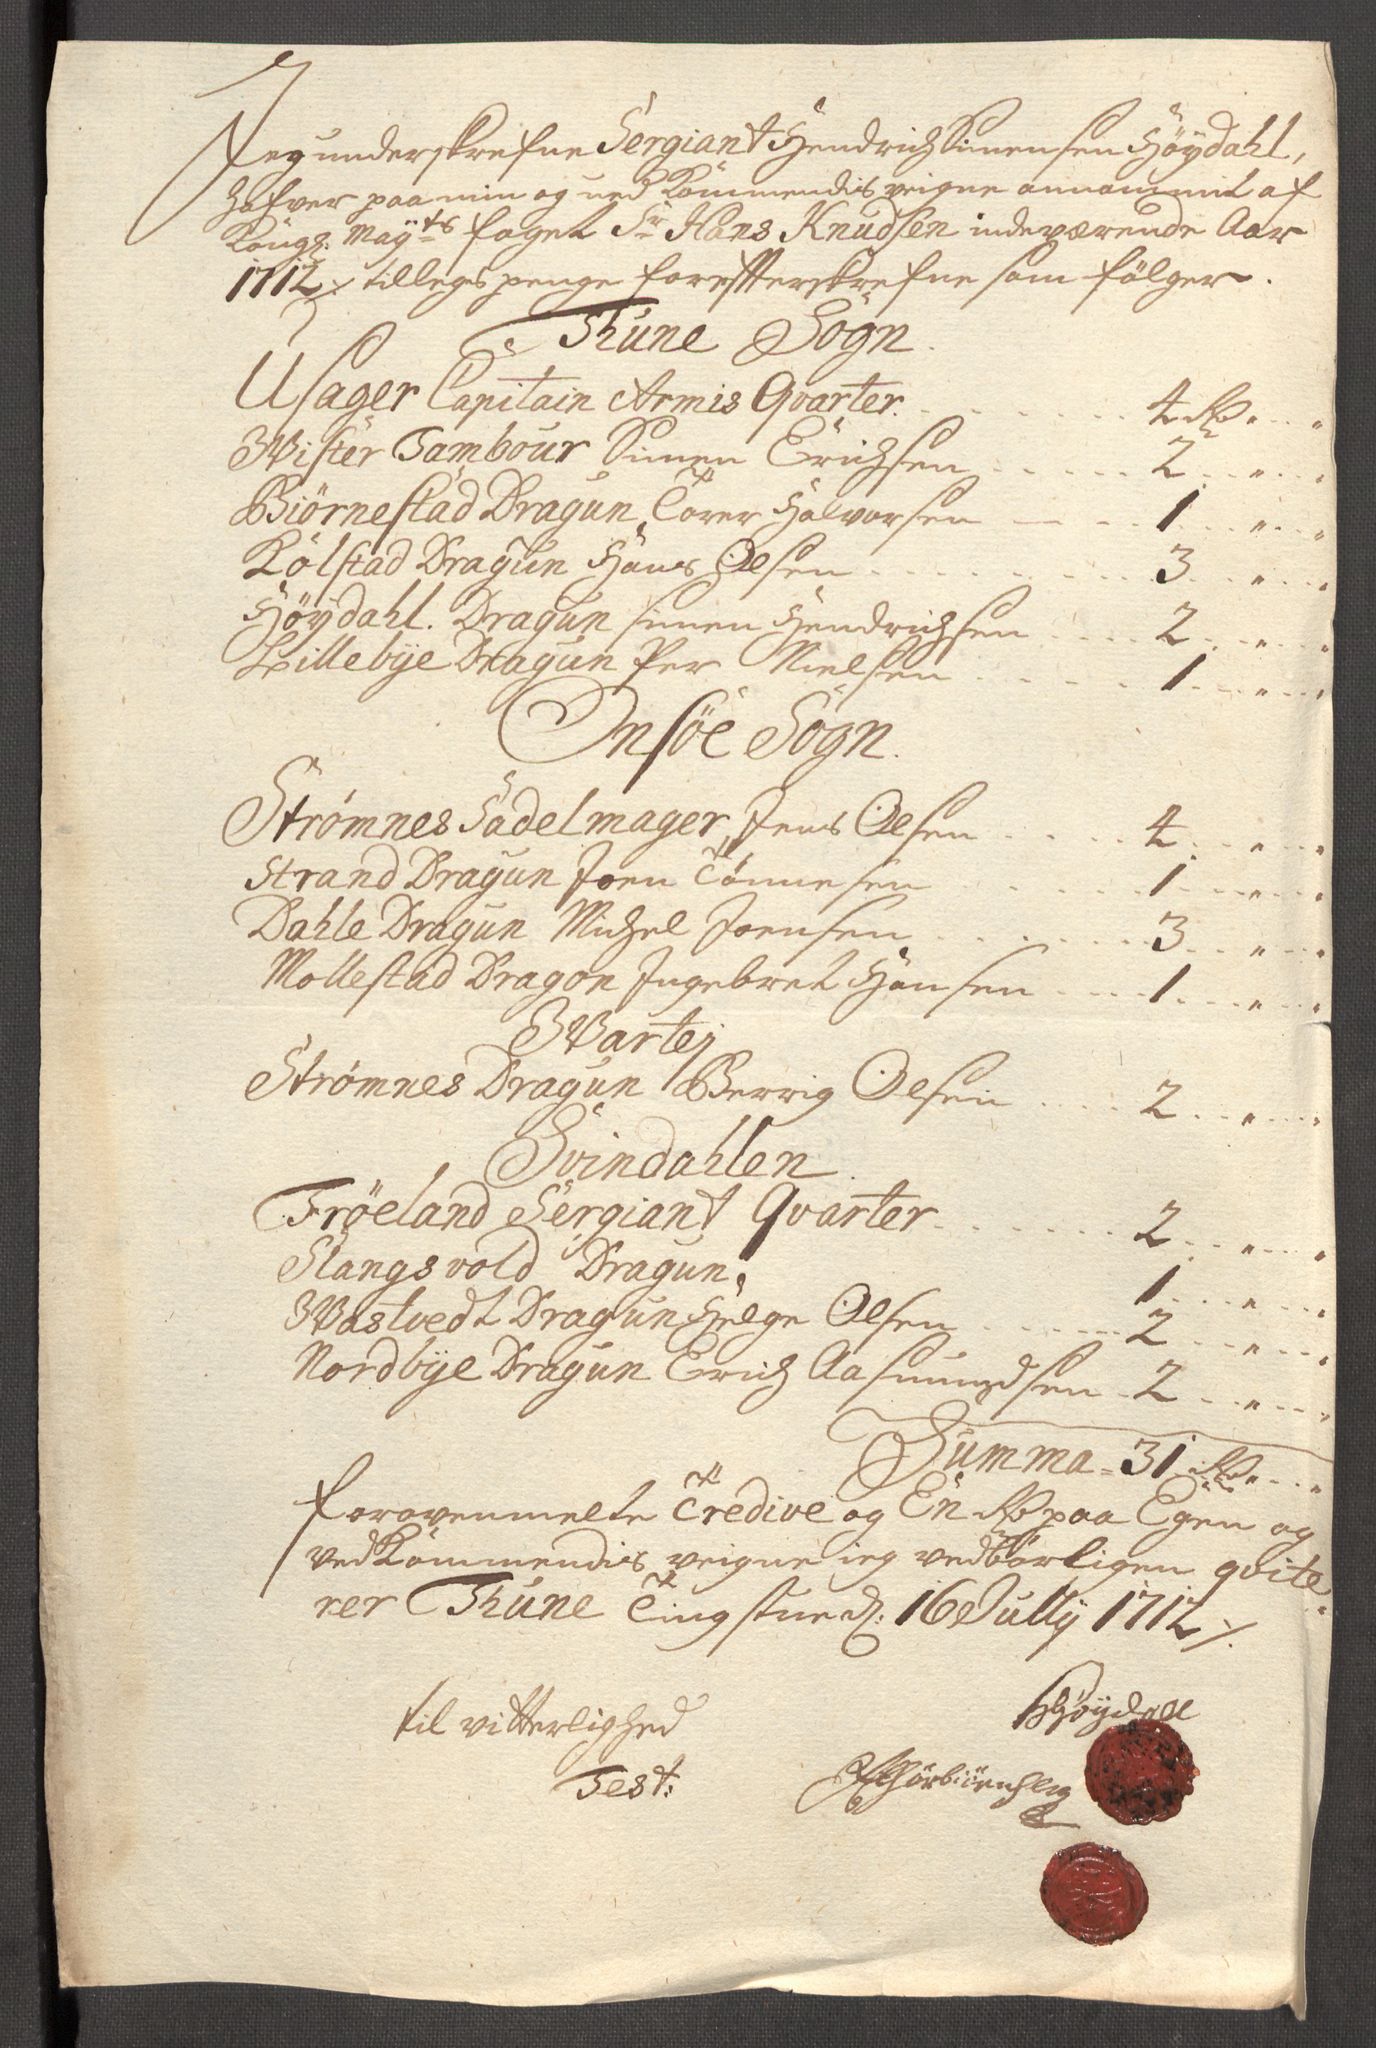 Jeg underskrefne Sergiant Hendrich Simensen Höydahl,
hafver paa min og ved Kommendis veigne annammit af
Kongl: Mayts foget Sr Hans Knudsen indeværende Aar
1712 ⁒ tillegs penge for effterskrefne som fölger.
Thune Sogn.
Usager Capitain Armis Qvarter. 4 Rd " "
Wister Tambour Simen Erichsen 2 " "
Biörnestad Dragun Torer Halvorsen 1 " "
Kölstad Dragun Hans Olsen 3 " "
Höydahl. Dragun Simen Hendrichsen 2 " "
Lillebye Dragun Per Nielsen 1 " "
Onsöe Sogn.
Strømnes Sadelmager Jens Olsen 4 " "
Strand Dragun Joen Tönnesen 1 " "
Dahle Dragun Michel Joensen 3 " "
Mollestad Dragon Ingebret Hansen 1 " "
Wartej
Strømnes Dragun Berrig Olsen 2 " "
Svindahlen
Fröeland Sergiant Qvarter 2 " "
Slangsvold Dragun. 1 " "
Wastvedt Dragun Helge Olsen 2 " "
Nordbÿe Dragun Erich Aasmundsen 2 " "
Summa = 31 Rd " "
forovenmelte Tredive og En Rd paa Egen og
ved Kommendis veigne ieg vedbörligen qvite-
rer Thune Tingstue d: 16 Jully 1712 ⁒
til vitterlighed HHöydall
Test: